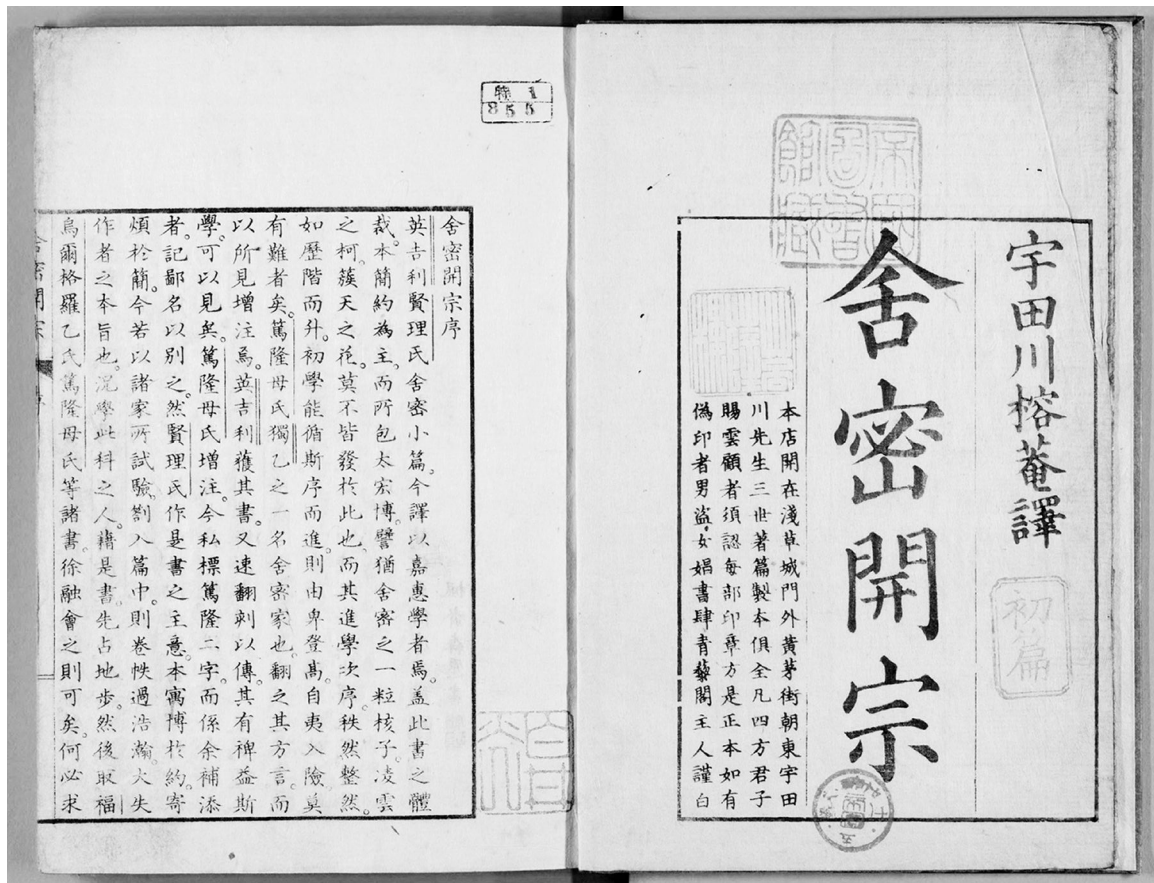 宇田川榕菴譯
初篇
舍密開宗
本店開在淺草城門外黄茅街朝東宇田
川先生三世著篇製本俱全凡四方君子
賜雲顧者須認每部印章方是正本如有
偽印者男盜女娼書肆青藜閣主人謹白
特1
855
舍密開宗序
英吉利賢理氏舍密小篇。今譯以嘉惠學者焉。蓋此書之體
裁。本簡約為主。而所包太宏博。譬猶舍密之一粒核子。凌雲
之柯。蔟天之花。莫不皆發於此也。而其進學次序。秩然整然。
如歷階而升。初學能循斯序而進。則由卑登髙。自夷入險莫
有難者矣。篤隆母氏。獨乙之一名舍密家也。翻之其方言。而
以所見增注焉。英吉利獲其書。又速翻刺以傳。其有裨益斯
學。可以見矣。篤隆母氏增注。今私標篤隆二字。而係余補添
者。記鄙名以別之。然賢理氏作是書之主意。本寓博於約。寄
煩於簡。今若以諸家所試驗。劄入篇中。則卷帙過浩瀚。大失
作者之本旨也。况學此科之人。藉是書。先占地步。然後取福
烏爾格羅乙氏篤隆母氏等諸書徐融會之則可矣。何必求
舍密開宗